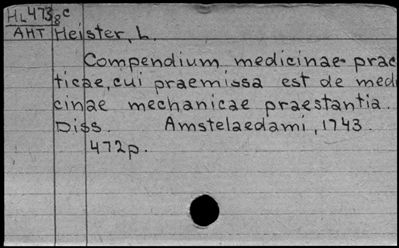 HL473 8c
AHT Heister, L.
Compendium medicinae prac
ticae, cui praemissa est de medi
cinae mechanicae praestantia.
Diss. Amstelaedami, 1743.
472p.